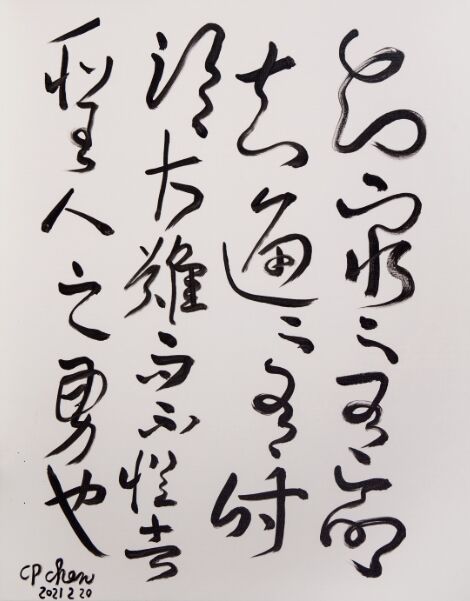 知窮之有命
知通之有時
臨大難而不懼者
聖人之勇也
CP chen
2021 2 20